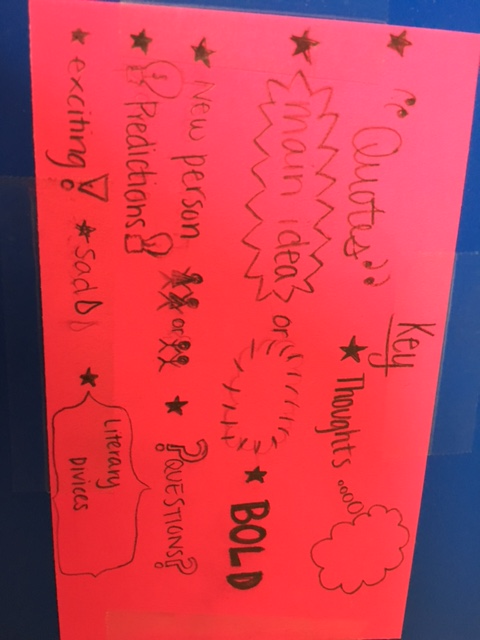 Key
"Quotes"
Thoughts
main idea or
BOLD
New person or
?QUESTIONS?
Predictions
exciting!
sad
Literary
Divices